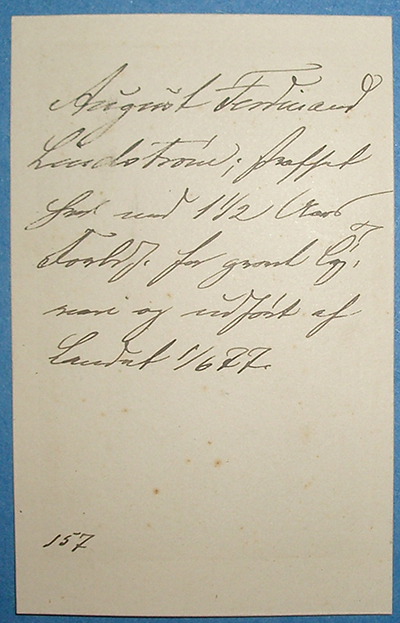 August Ferdinand
Lindström; straffet
her med 1 1/2 Aars
for grovt Ty,
veri og udført af
Landet 1/6 77.
157